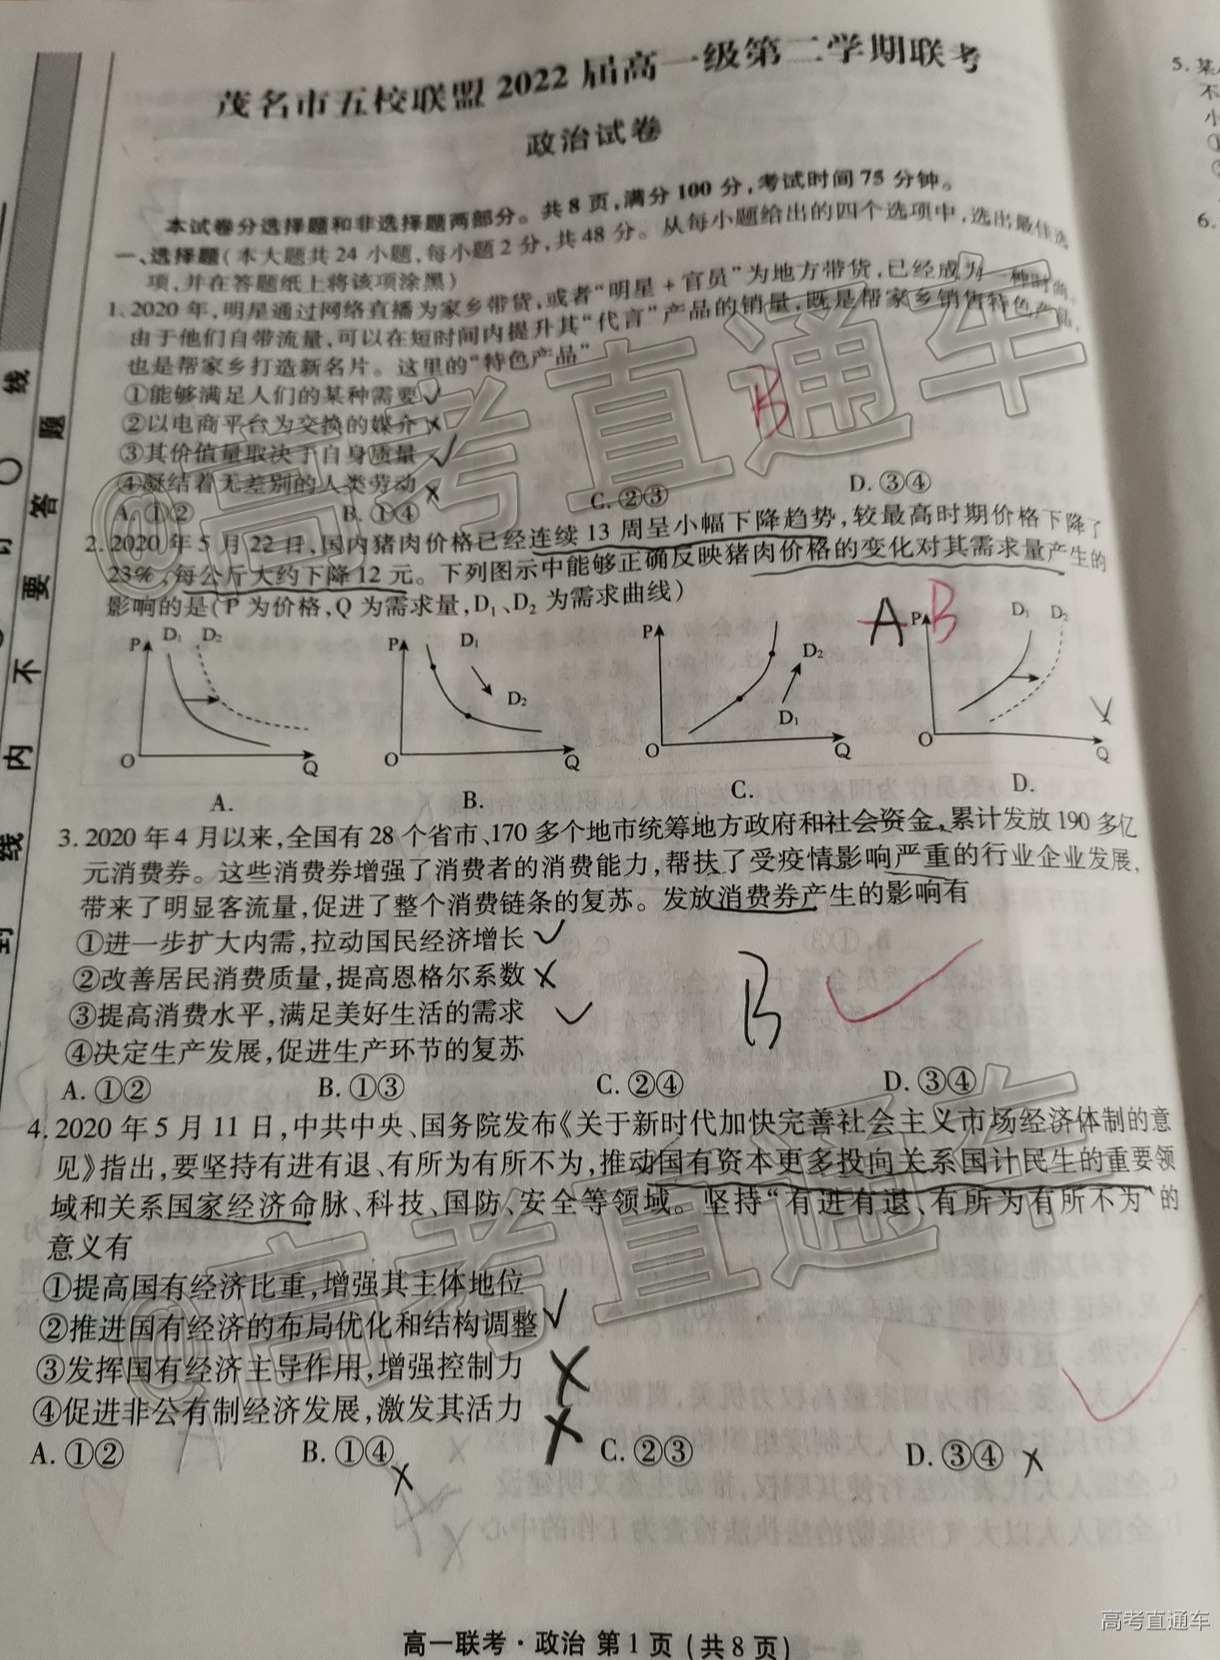 茂名市五校联盟2022届高一级第二学期联考
政治试卷
本试卷分选择题和非选择题两部分。共8页,满分100分,考试时间75分钟。
一、选择题(本大题共24小题,每小题2分,共48分。从每小题给出的四个选项中,选出最佳选
项,并在答题纸上将该项涂黑)
1.2020年,明星通过网络直播为家乡带货,或者“明星+官员”为地方带货,已经成为一种时尚。
由于他们自带流量,可以在短时间内提升其“代言”产品的销量,既是帮家乡销售特色产品,
也是帮家乡打造新名片。这里的“特色产品”
①能够满足人们的某种需要✓
②以电商平台为交换的媒介×
③其价值量取决于自身质量✓
④凝结着无差别的人类劳动×
B
A.①② B.①④ C.②③ D.③④
2.2020年5月22日,国内猪肉价格已经连续13周呈小幅下降趋势,较最高时期价格下降了
23%,每公斤大约下降12元。下列图示中能够正确反映猪肉价格的变化对其需求量产生的
影响的是(P为价格,Q为需求量,D₁、D₂为需求曲线)
A B
P D₁ D₂ O Q
P D₁ D₂ O Q
P D₂ D₁ O Q
P D₁ D₂ O Q
A. B. C. D.
3.2020年4月以来,全国有28个省市、170多个地市统筹地方政府和社会资金,累计发放190多亿
元消费券。这些消费券增强了消费者的消费能力,帮扶了受疫情影响严重的行业企业发展,
带来了明显客流量,促进了整个消费链条的复苏。发放消费券产生的影响有
①进一步扩大内需,拉动国民经济增长✓
②改善居民消费质量,提高恩格尔系数×
③提高消费水平,满足美好生活的需求✓
④决定生产发展,促进生产环节的复苏
B ✓
A.①② B.①③ C.②④ D.③④
4.2020年5月11日,中共中央、国务院发布《关于新时代加快完善社会主义市场经济体制的意
见》指出,要坚持有进有退、有所为有所不为,推动国有资本更多投向关系国计民生的重要领
域和关系国家经济命脉、科技、国防、安全等领域。坚持“有进有退、有所为有所不为”的
意义有
①提高国有经济比重,增强其主体地位
②推进国有经济的布局优化和结构调整✓
③发挥国有经济主导作用,增强控制力×
④促进非公有制经济发展,激发其活力×
A.①② B.①④× C.②③ D.③④×
高一联考·政治 第1页(共8页)
线
题
答
要
不
内
线
封
5.某
不
小
6.
@高考直通车
@高考直通车
高考直通车